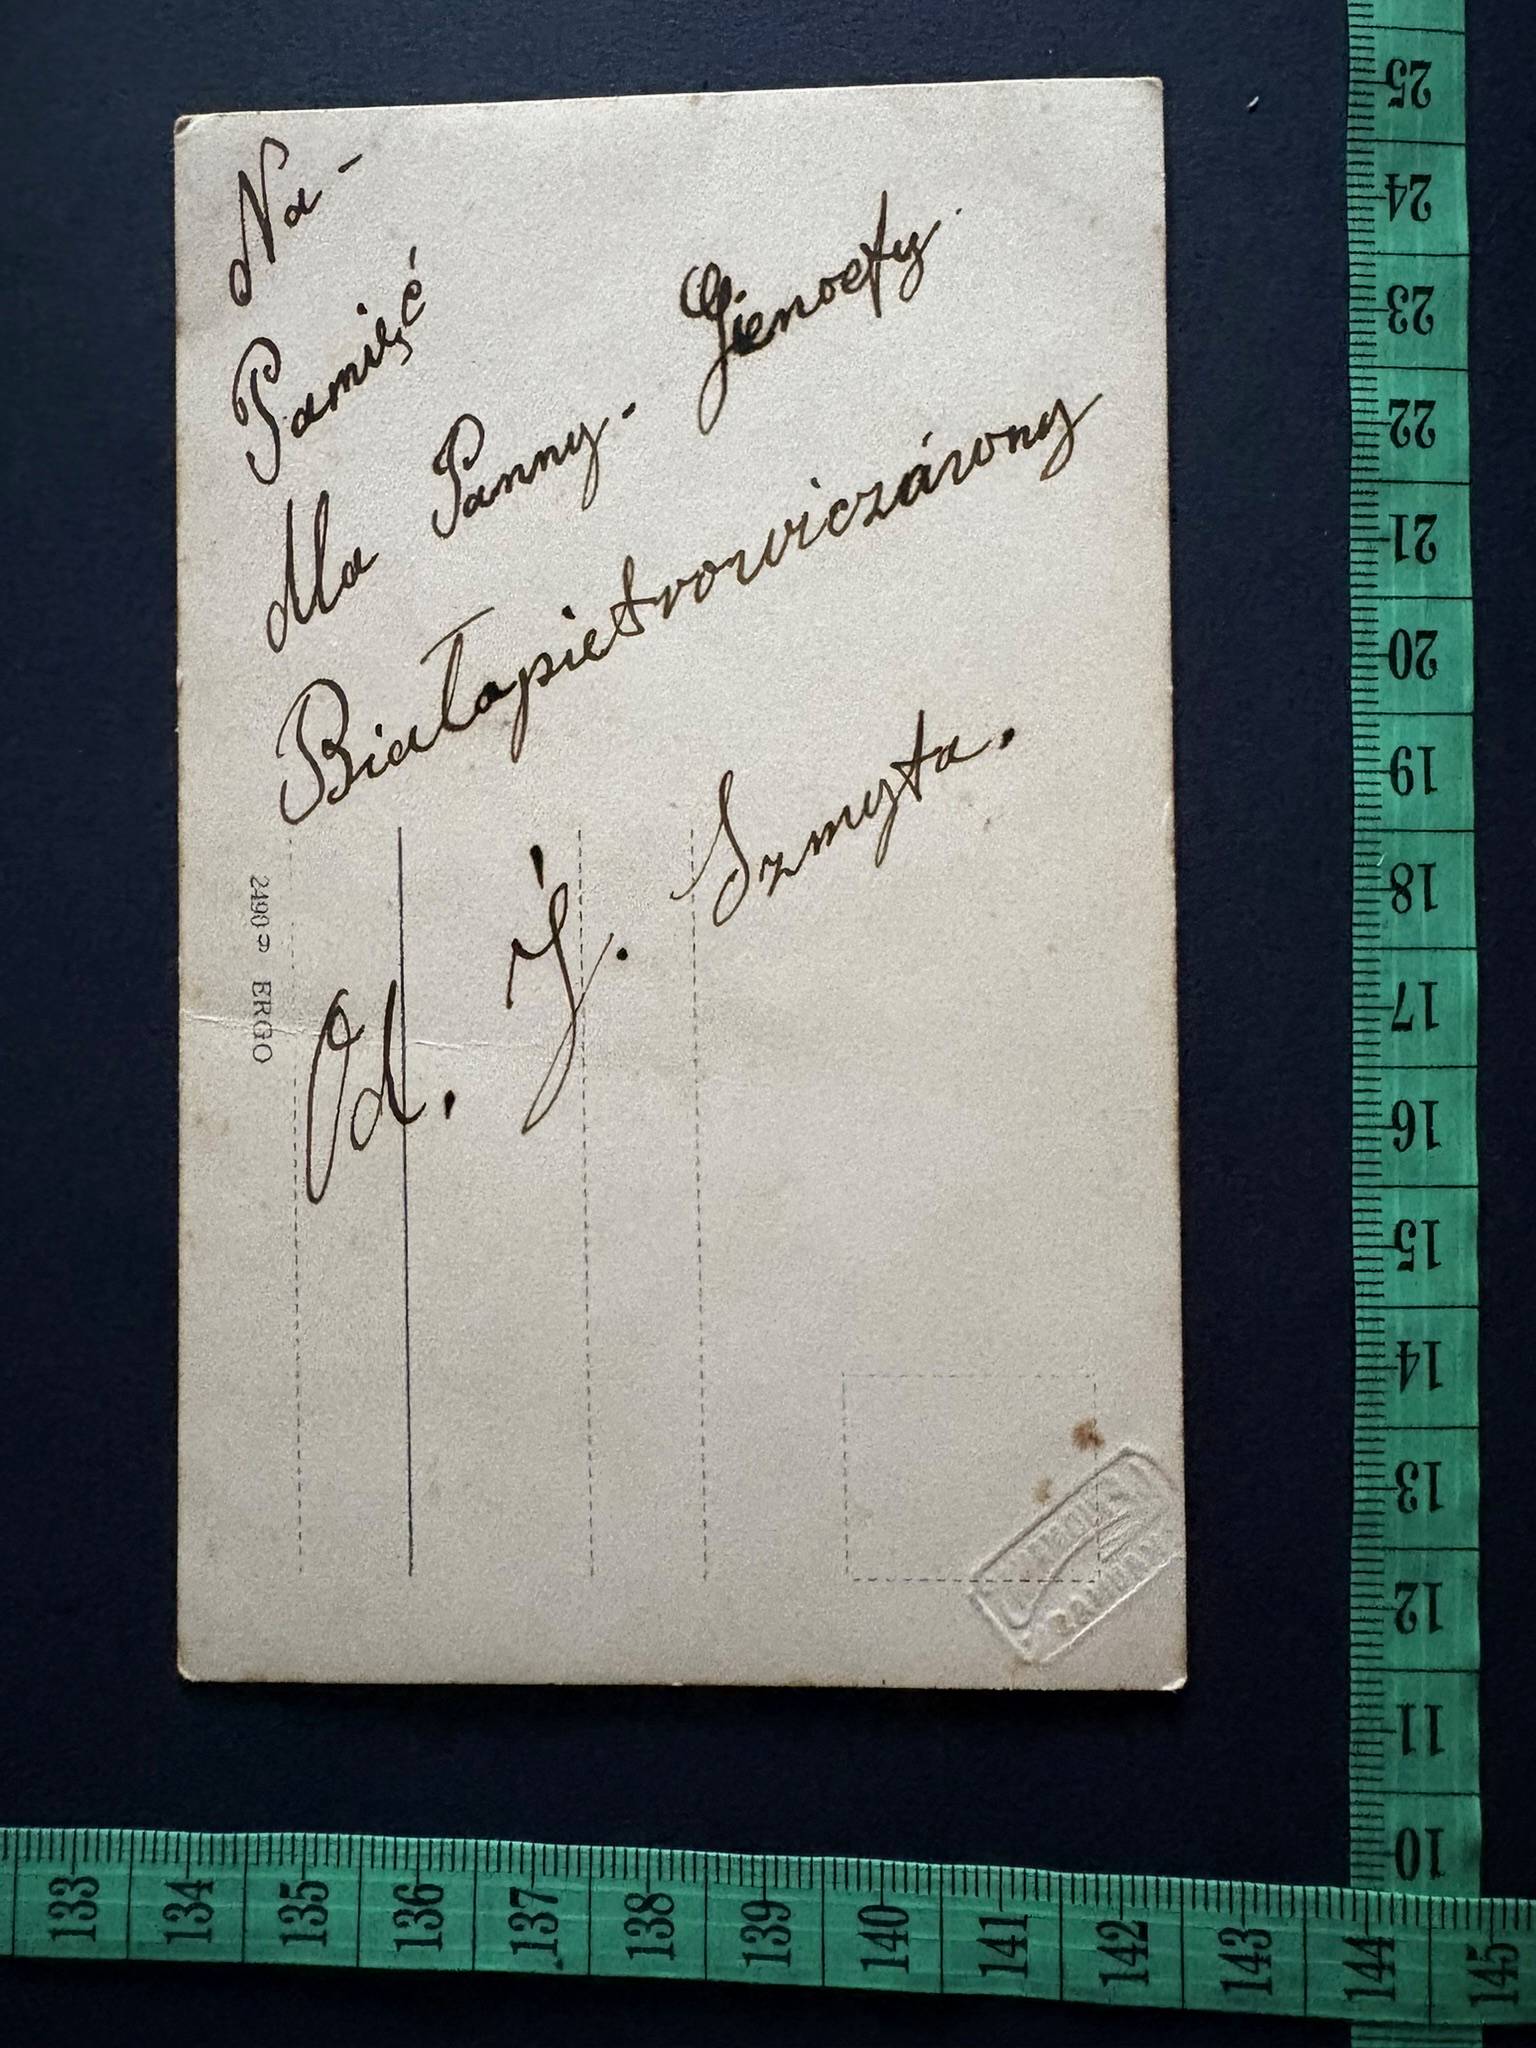 Na-
Pamięć
dla Panny. Gienoefy.
Białopietrowiczárony
Od. J. Szmyta.
2490 ERGO
25
24
23
22
21
20
19
18
17
16
15
14
13
12
11
10
133 134 135 136 137 138 139 140 141 142 143 144 145